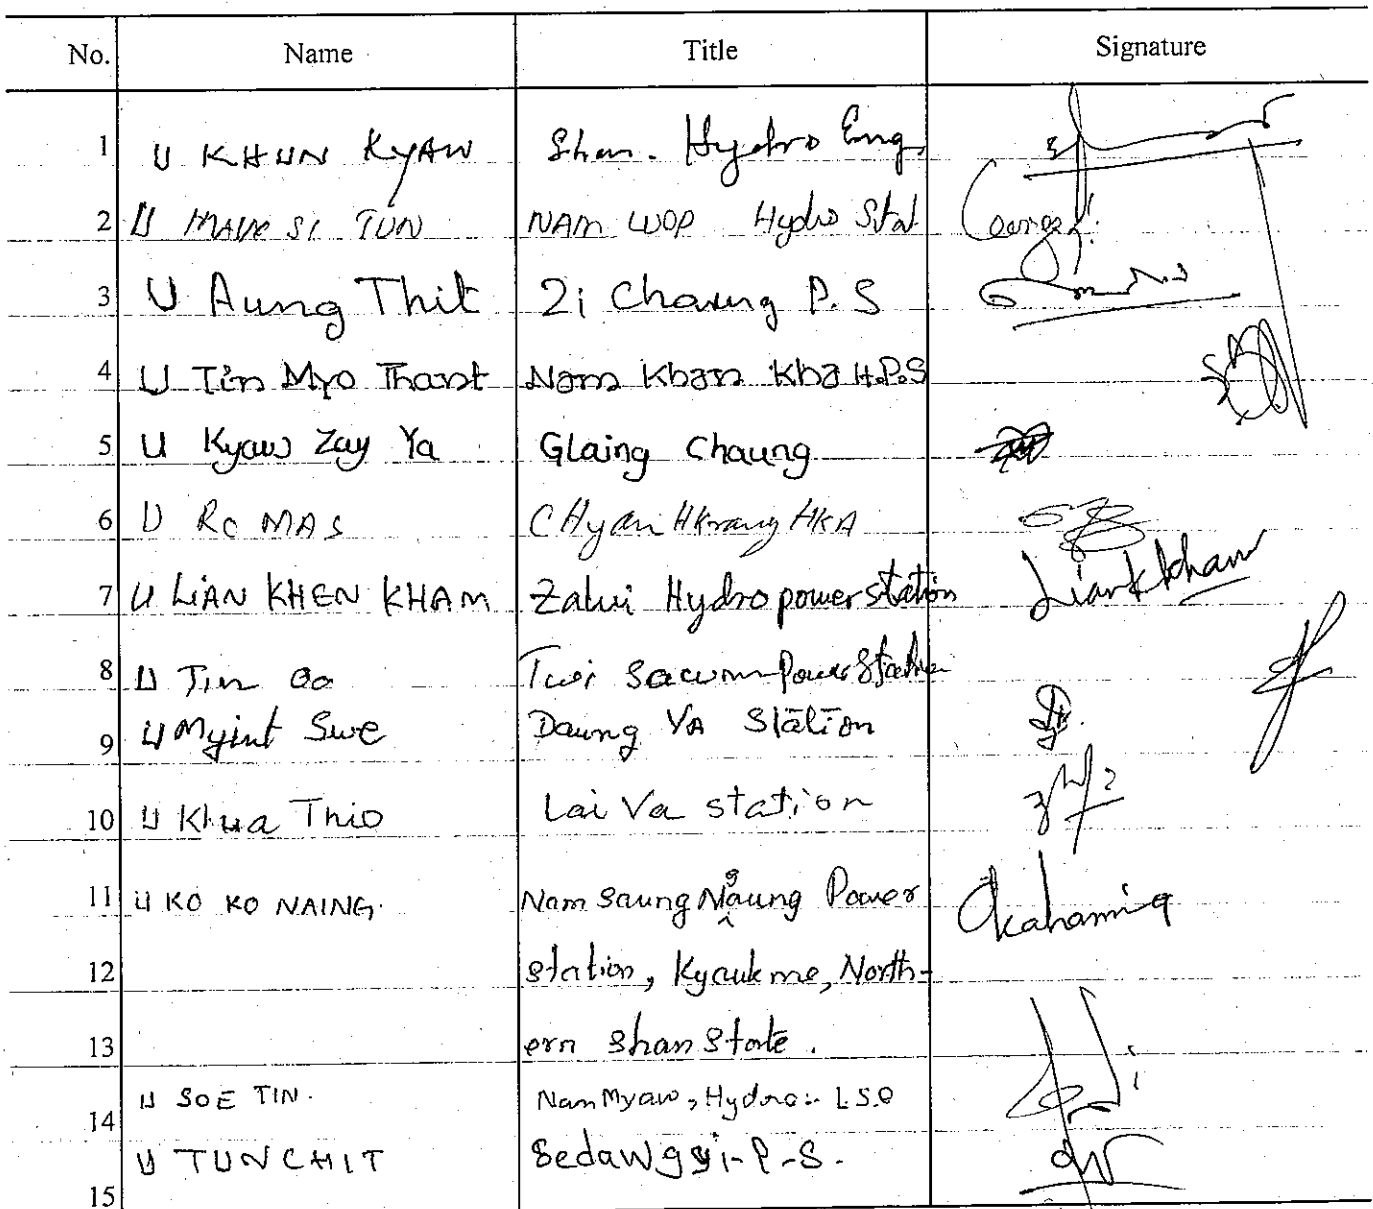 No. Name Title Signature
1 U KHUN KYAW Shan. Hydro Eng.
2 U SI TUN NAM WOP Hydro Stat
3 U Aung Thit Zi Chaung P.S
4 U Tin Myo Thant Nam Khan Kha H.P.S
5 U Kyaw Zay Ya Glaing Chaung
6 U RC MAS CHyan HKrang HKA
7 U LIAN KHEN KHAM Zalui Hydropower station Liankkham
8 U Tin Oo Twi Sawm Power Station
9 U Myint Swe Daung YA Station
10 U Khua Thio Lai Va station
11 U KO KO NAING. Nam Saung Ngaung Power
12 station, Kyaukme, North-
13 ern Shan State.
14 U SOE TIN. Nam Myaw, Hydro:- L.S.O
U TUN CHIT Sedawgyi-P-S.
15